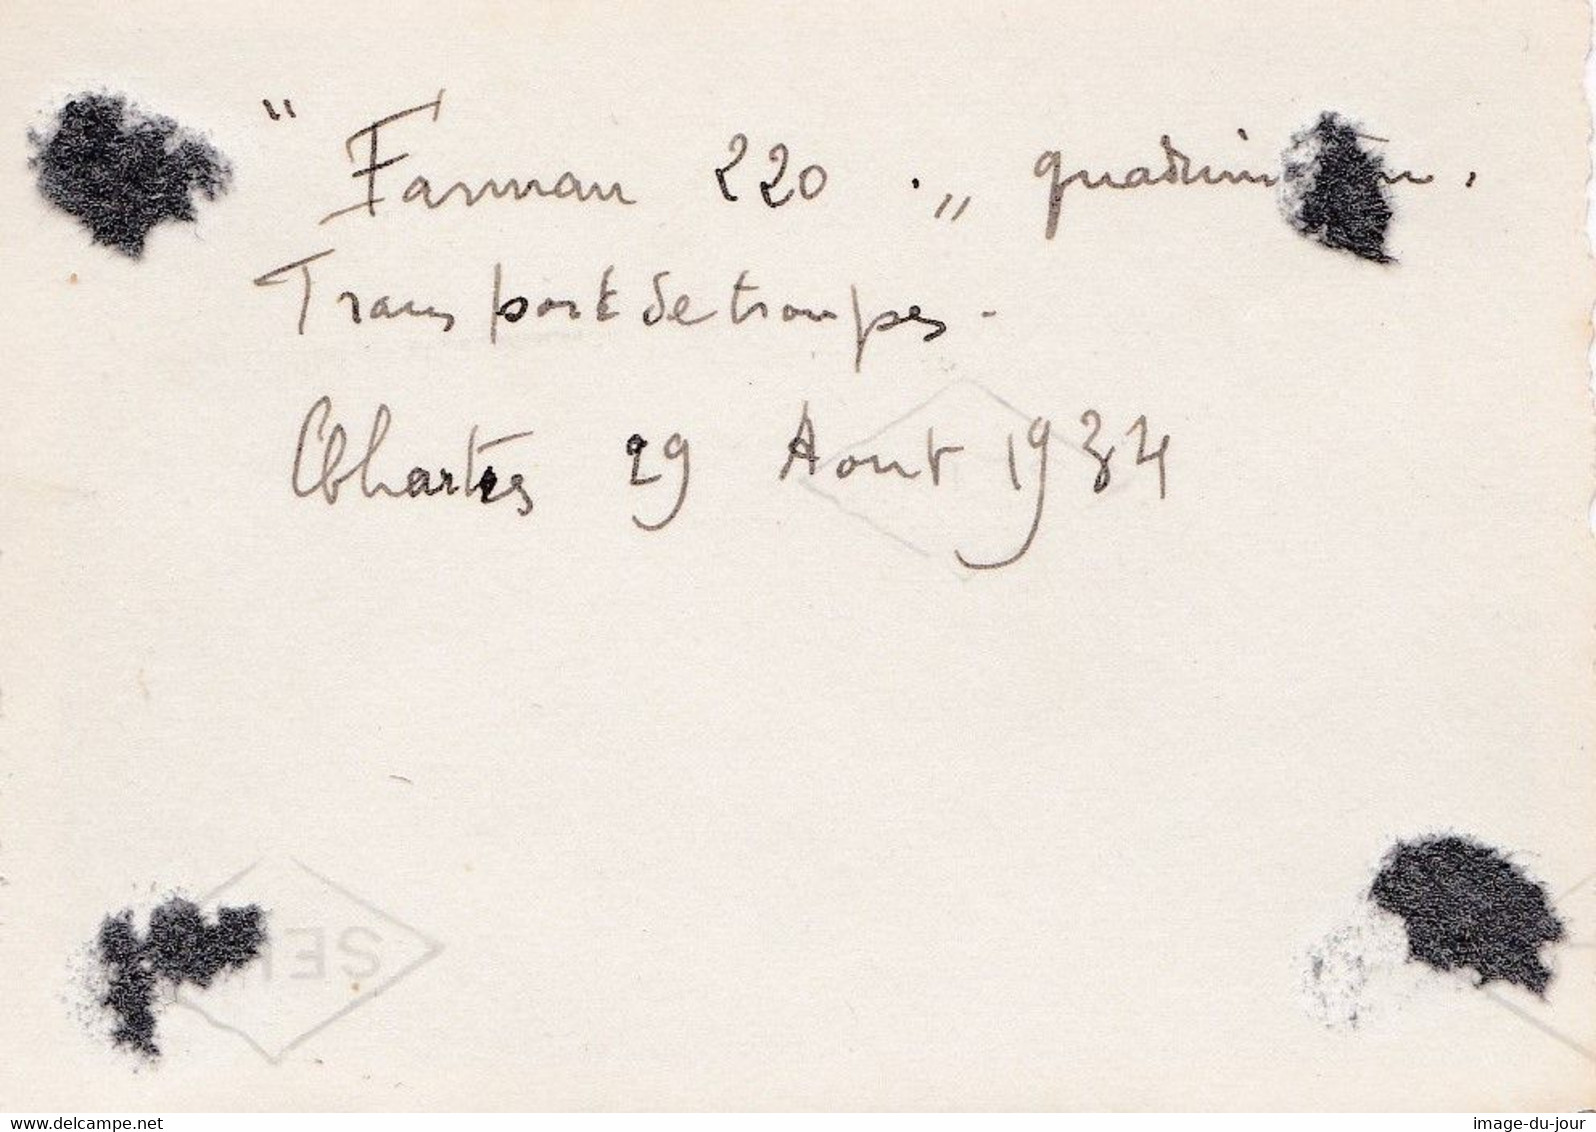 " Farman 220 . „ quadrim
Transport de troupes -
Chartres 29 Aout 1934
SE
www.delcampe.net
image-du-jour